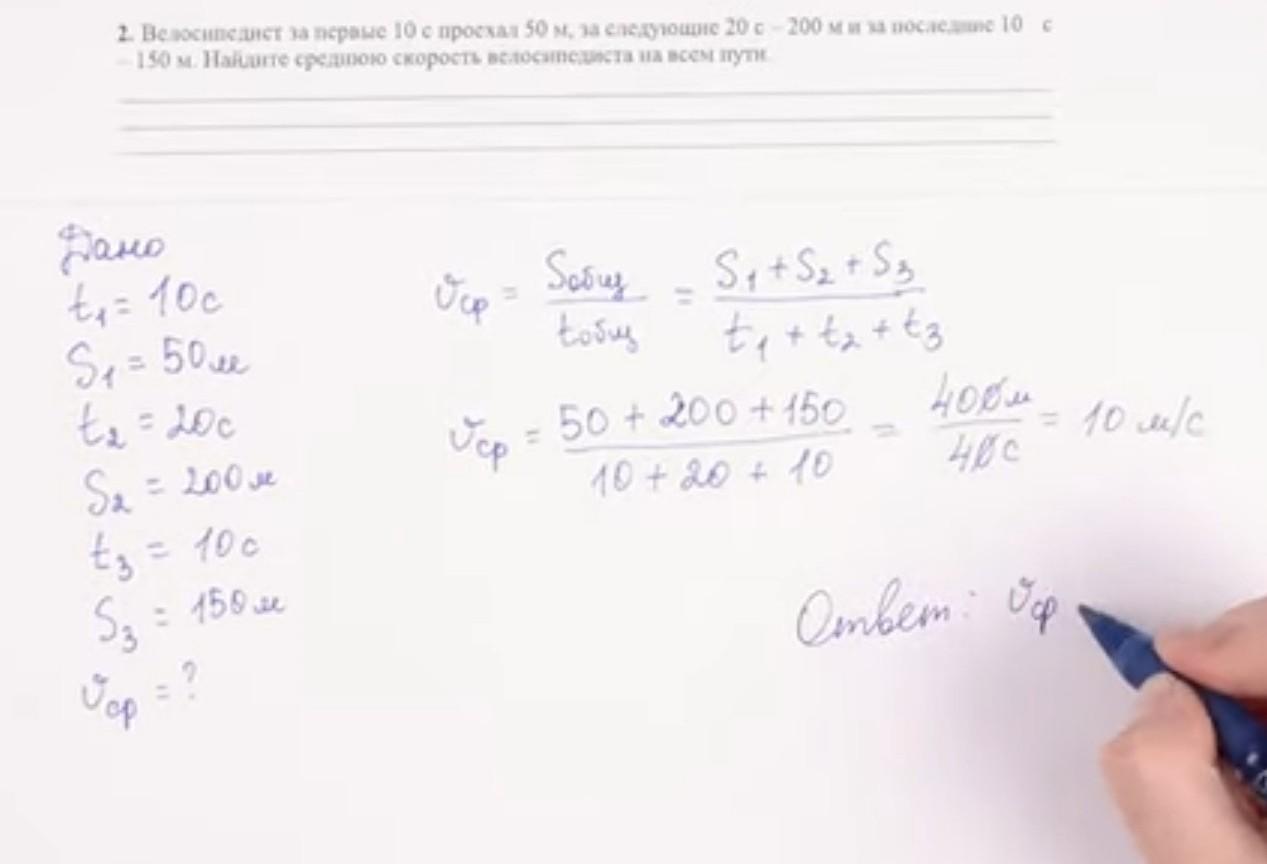 2. Велосипедист за первые 10 с проехал 50 м, за следующие 20 с – 200 м и за последние 10 с
– 150 м. Найдите среднюю скорость велосипедиста на всем пути.
Дано
t₁ = 10с
S₁ = 50м
t₂ = 20с
S₂ = 200м
t₃ = 10с
S₃ = 150м
υср = ?
υср = Sобщ / tобщ = S₁ + S₂ + S₃ / t₁ + t₂ + t₃
υср = 50 + 200 + 150 / 10 + 20 + 10 = 400м / 40с = 10 м/с
Ответ: υср